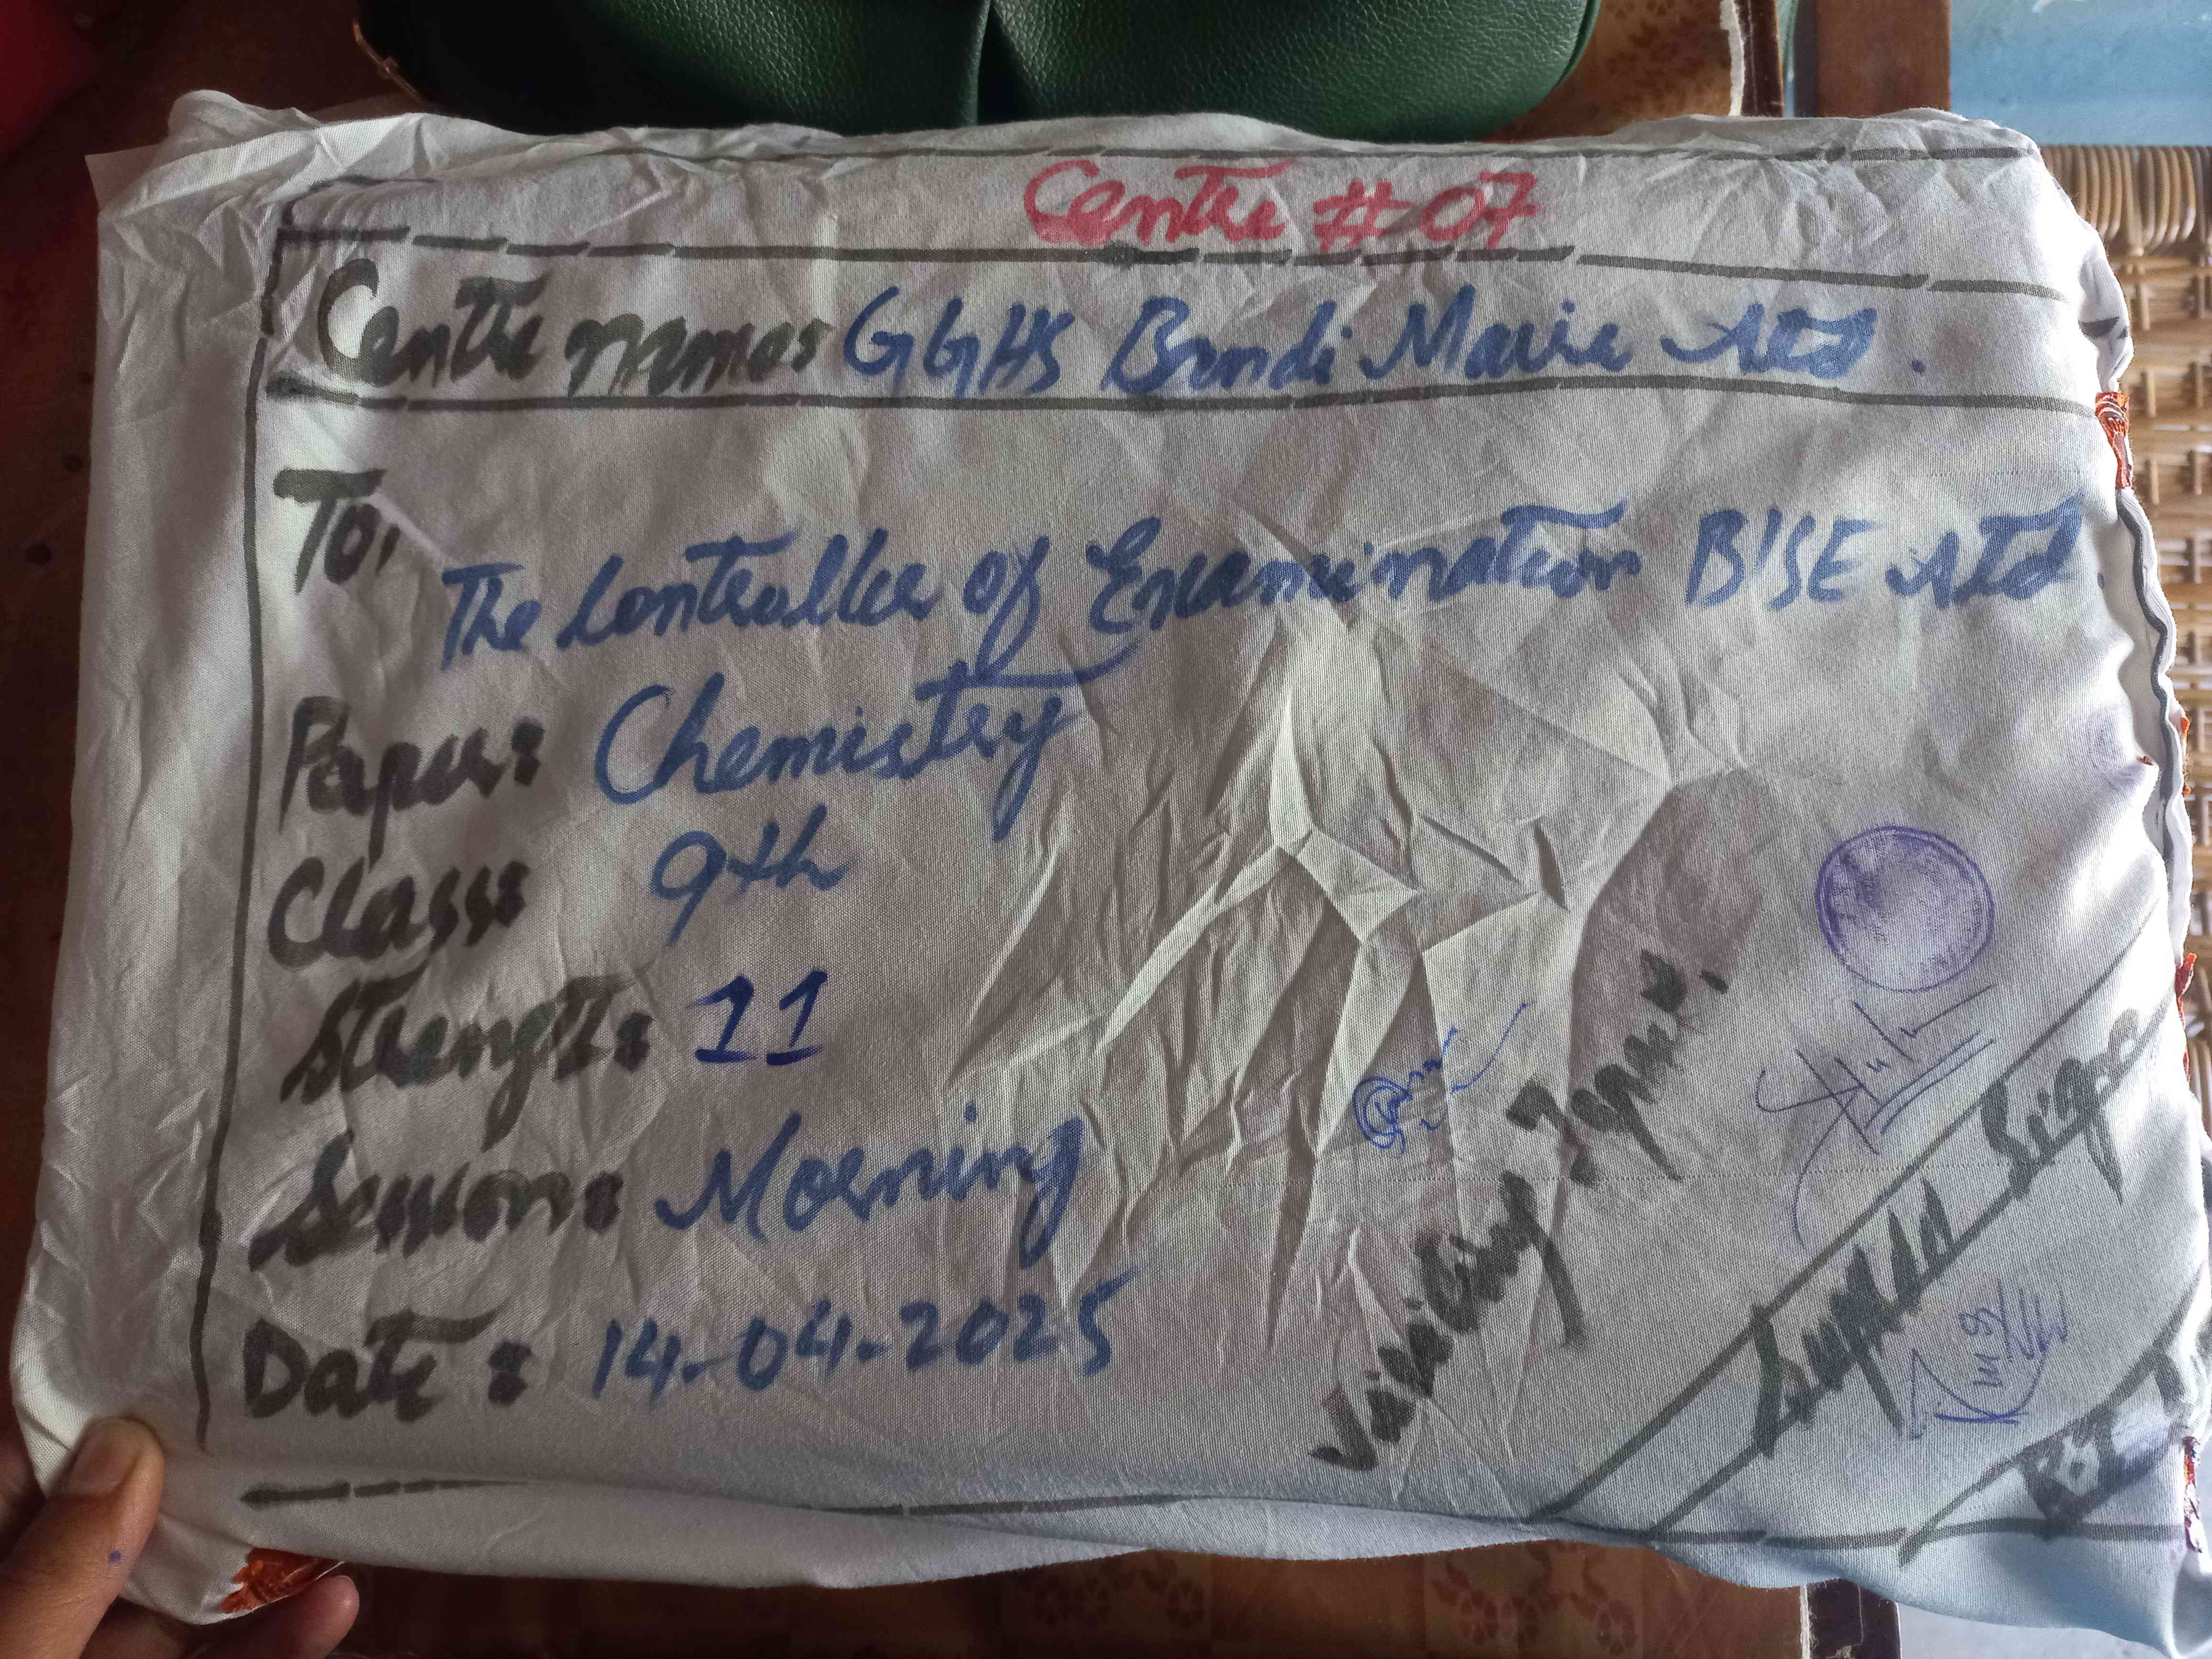 Centre # 07
Centre name: GGHS Bandi Maira Atd.
To,
The Controller of Examination BISE Atd.
Paper: Chemistry
Class: 9th
Strength: 11
Session: Morning
Date: 14-04-2025
Supdd Sign